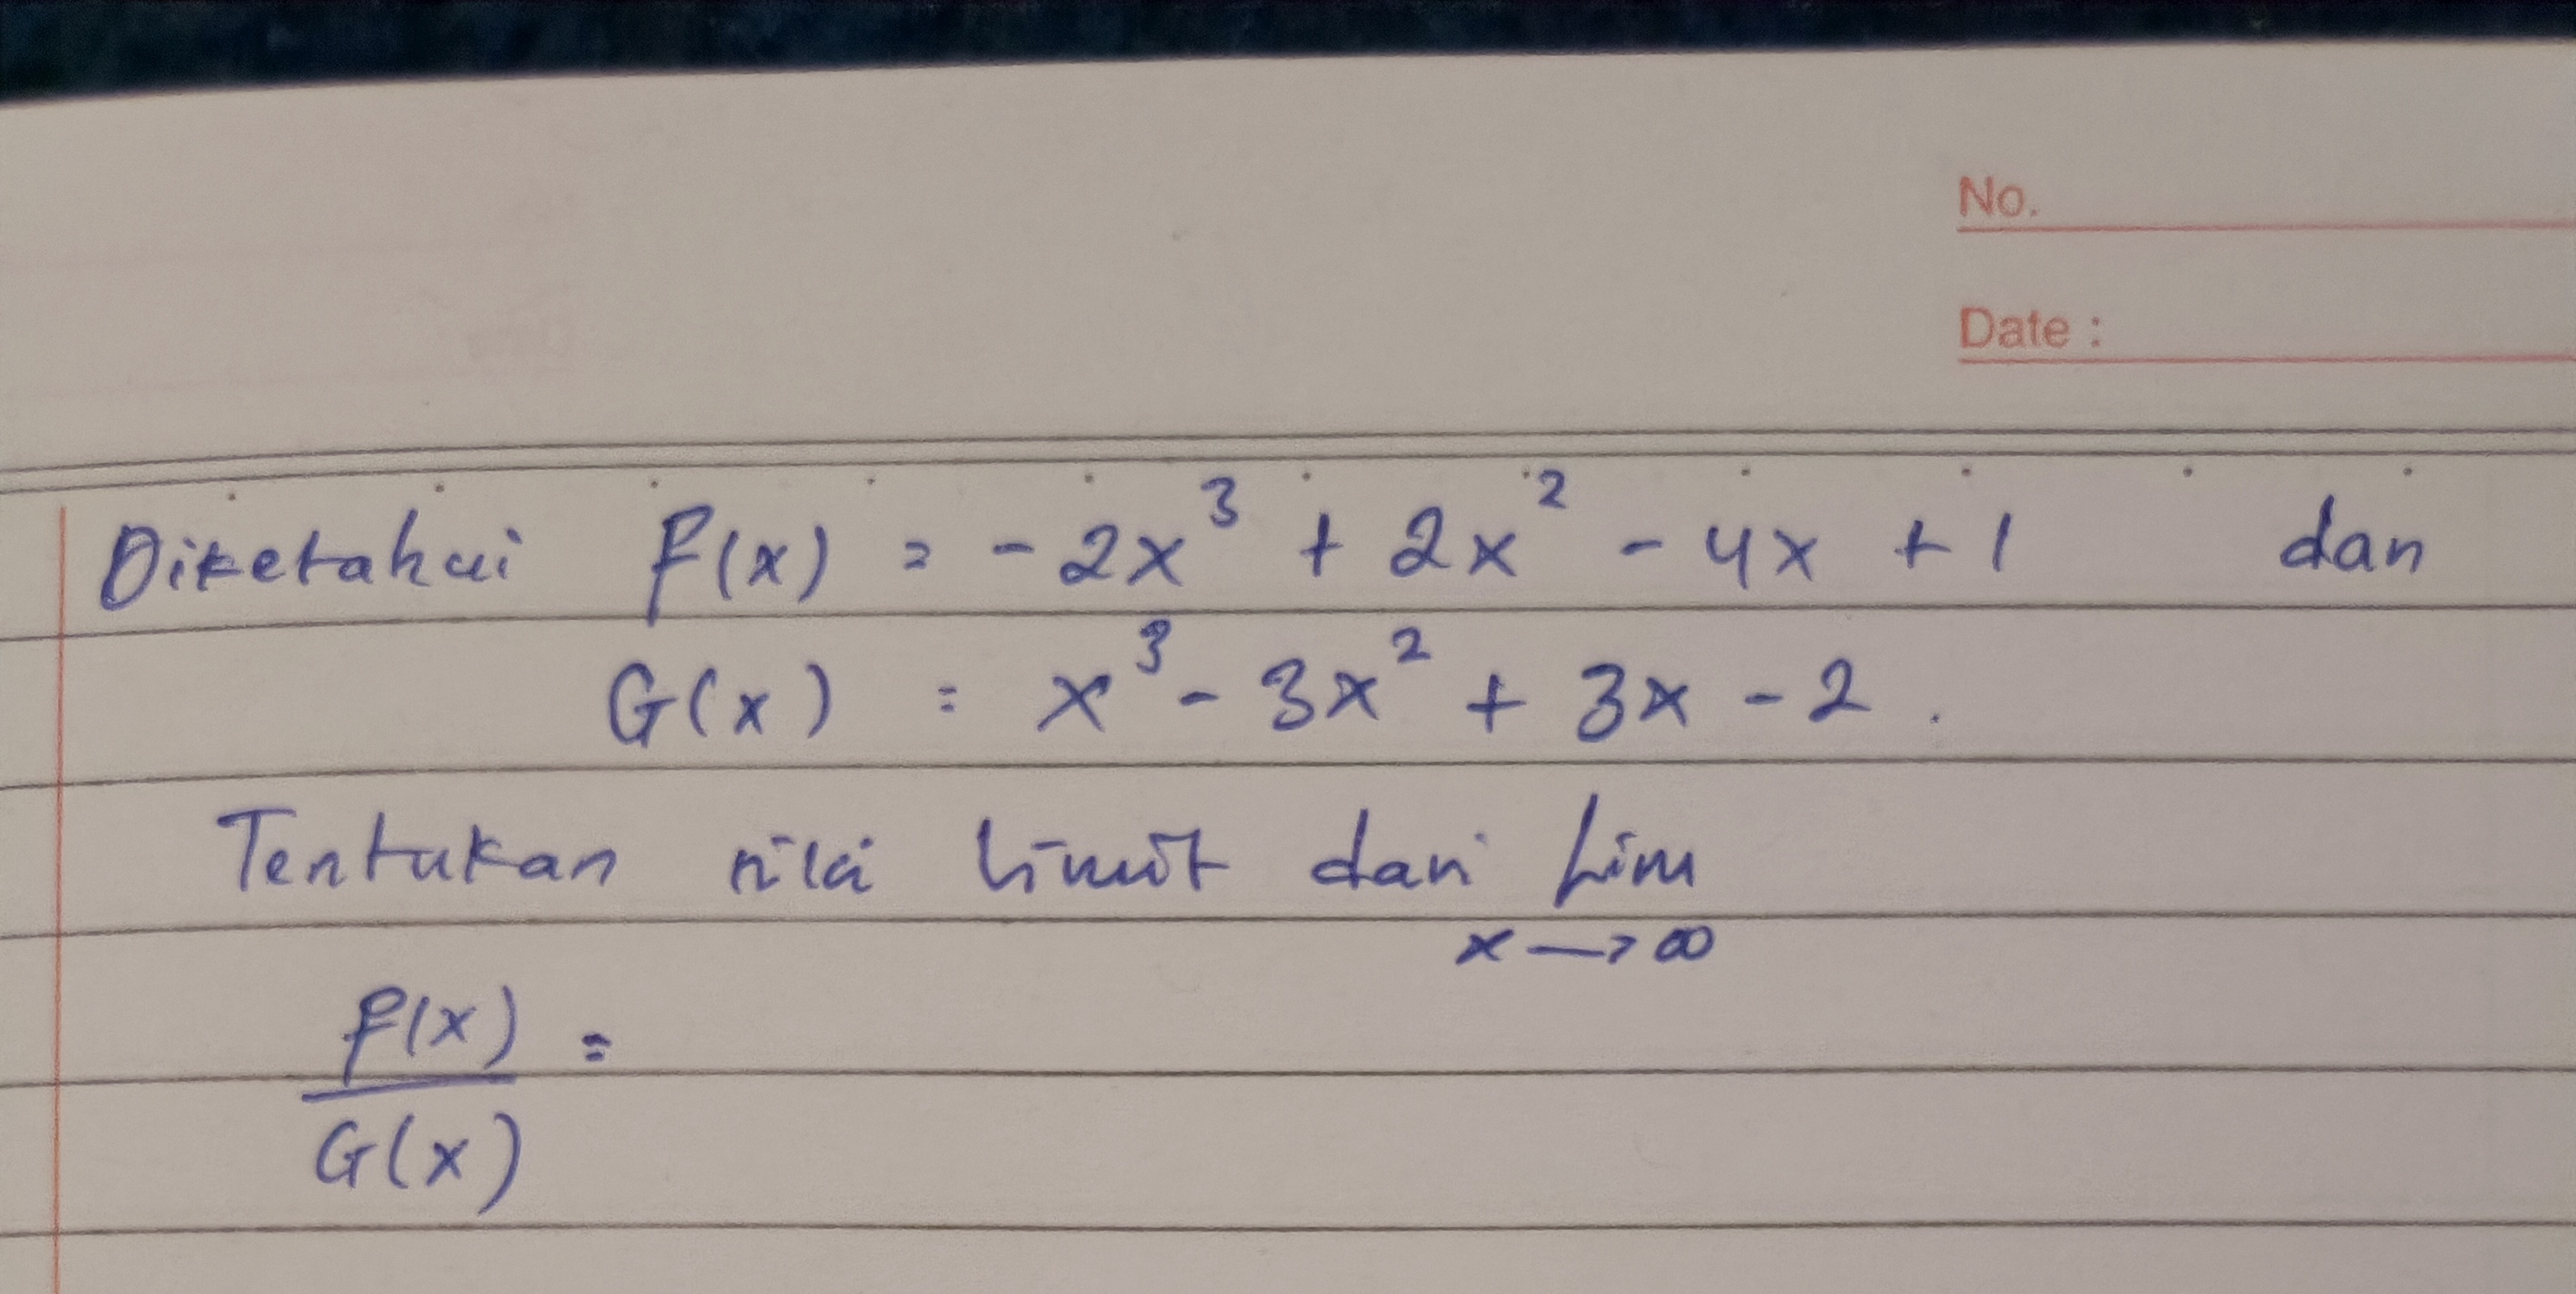 No.
Date :
Diketahui F(x) = -2x³ + 2x² - 4x + 1 dan
G(x) = x³ - 3x² + 3x - 2.
Tentukan nilai limit dari Lim
x → ∞
F(x) =
G(x)